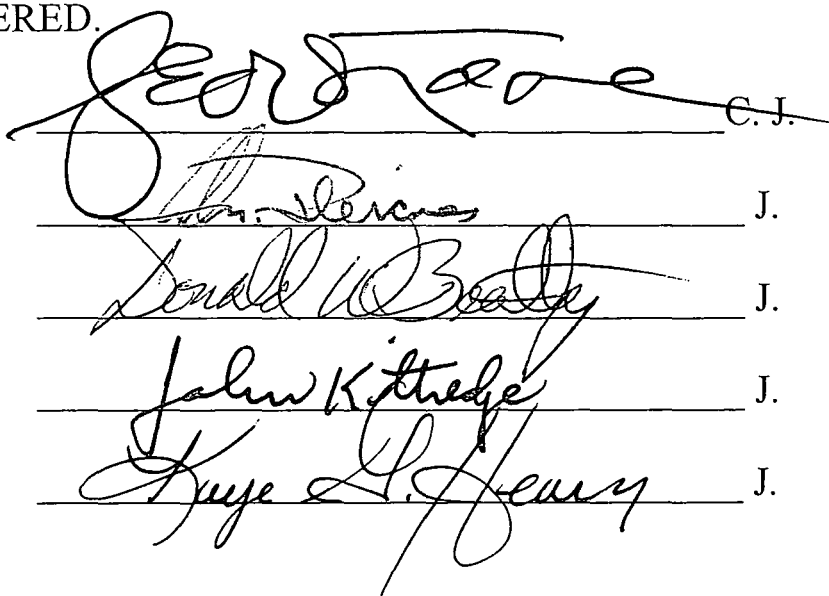 ERED.
C. J.
J.
Donald W Beatty J.
John Kittredge J.
Kaye G. Hearn J.